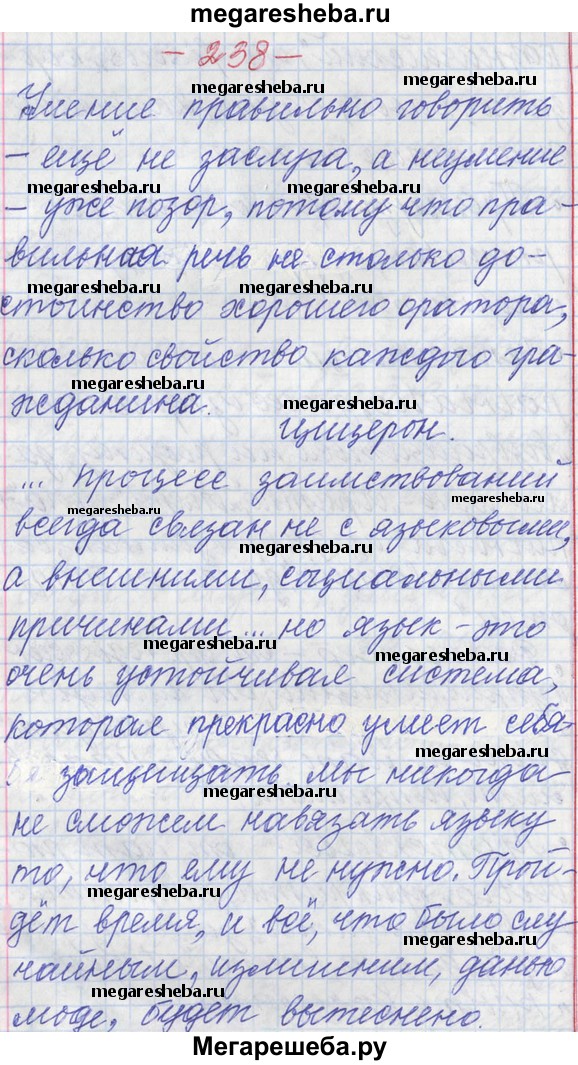 megaresheba.ru
- 238 -
megaresheba.ru
megaresheba.ru
Умение правильно говорить
- ещё не заслуга, а неумение
megaresheba.ru
megaresheba.ru
- уже позор, потому что пра-
вильная речь не столько до-
megaresheba.ru
megaresheba.ru
стоинство хорошего оратора,
сколько свойство каждого гра-
megaresheba.ru
megaresheba.ru
жданина.
Цицерон.
... процесс заимствований
megaresheba.ru
всегда связан не с языковыми,
megaresheba.ru
а внешними, социальными
причинами... но язык - это
megaresheba.ru
очень устойчивая система,
которая прекрасно умеет себя
megaresheba.ru
защищать. Мы никогда
megaresheba.ru
не сможем навязать языку
то, что ему не нужно. Прой-
megaresheba.ru
дёт время, и всё, что было слу
megaresheba.ru
чайным, излишним, данью
megaresheba.ru
моде, будет вытеснено.
Мегарешеба.ру